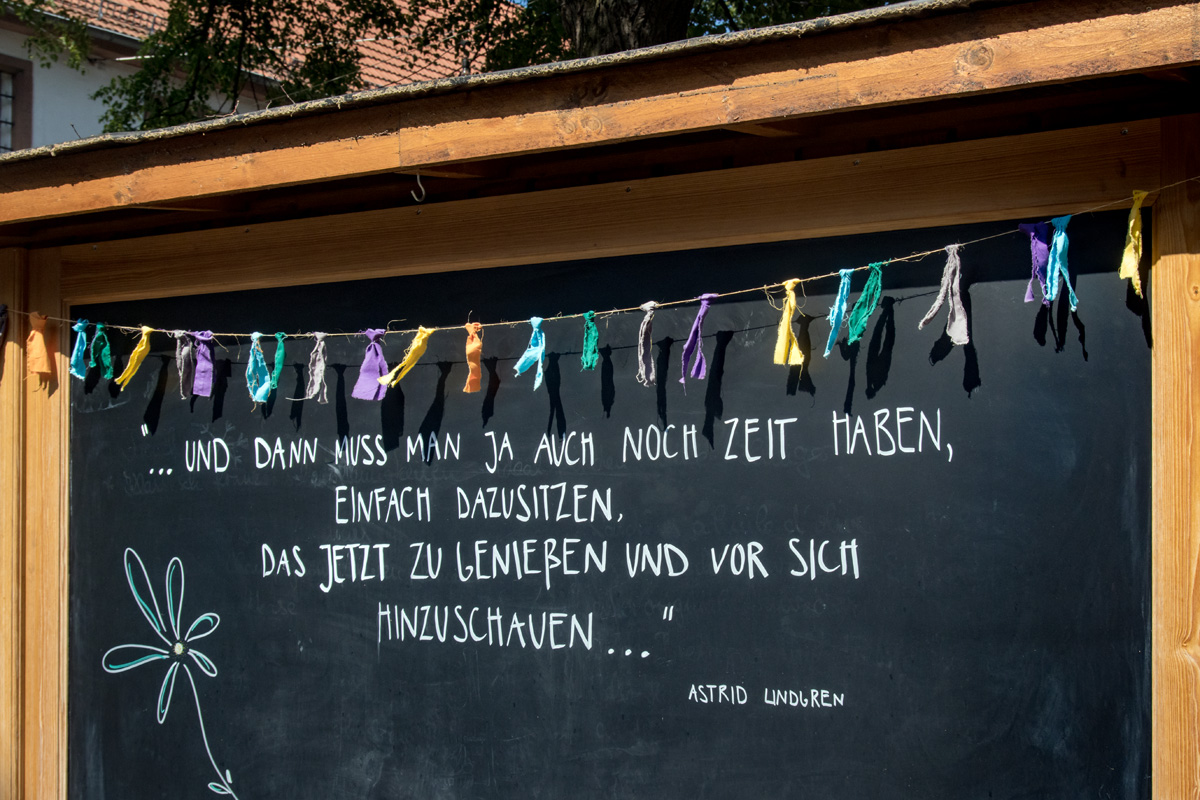 "... UND DANN MUSS MAN JA AUCH NOCH ZEIT HABEN,
EINFACH DAZUSITZEN,
DAS JETZT ZU GENIEßEN UND VOR SICH
HINZUSCHAUEN..."
ASTRID LINDGREN